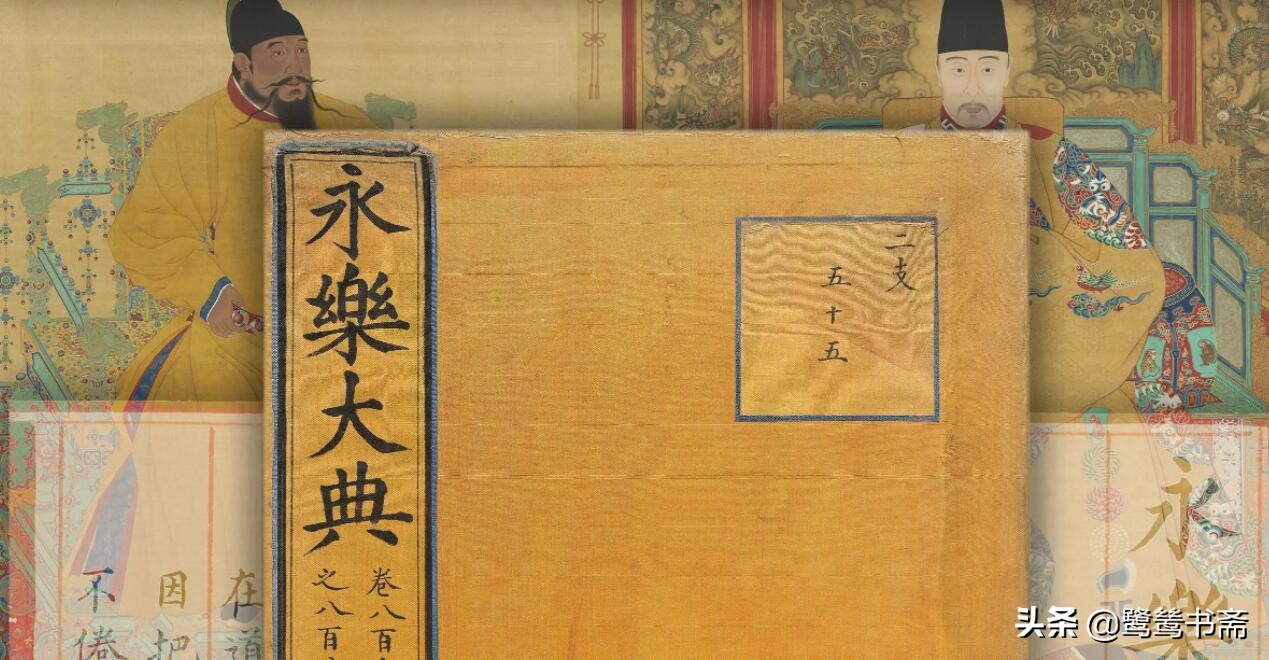 永樂大典
卷八百
之八百
二支
五十五
在道
因把
不倦
永樂
头条 @鹭鸶书斋